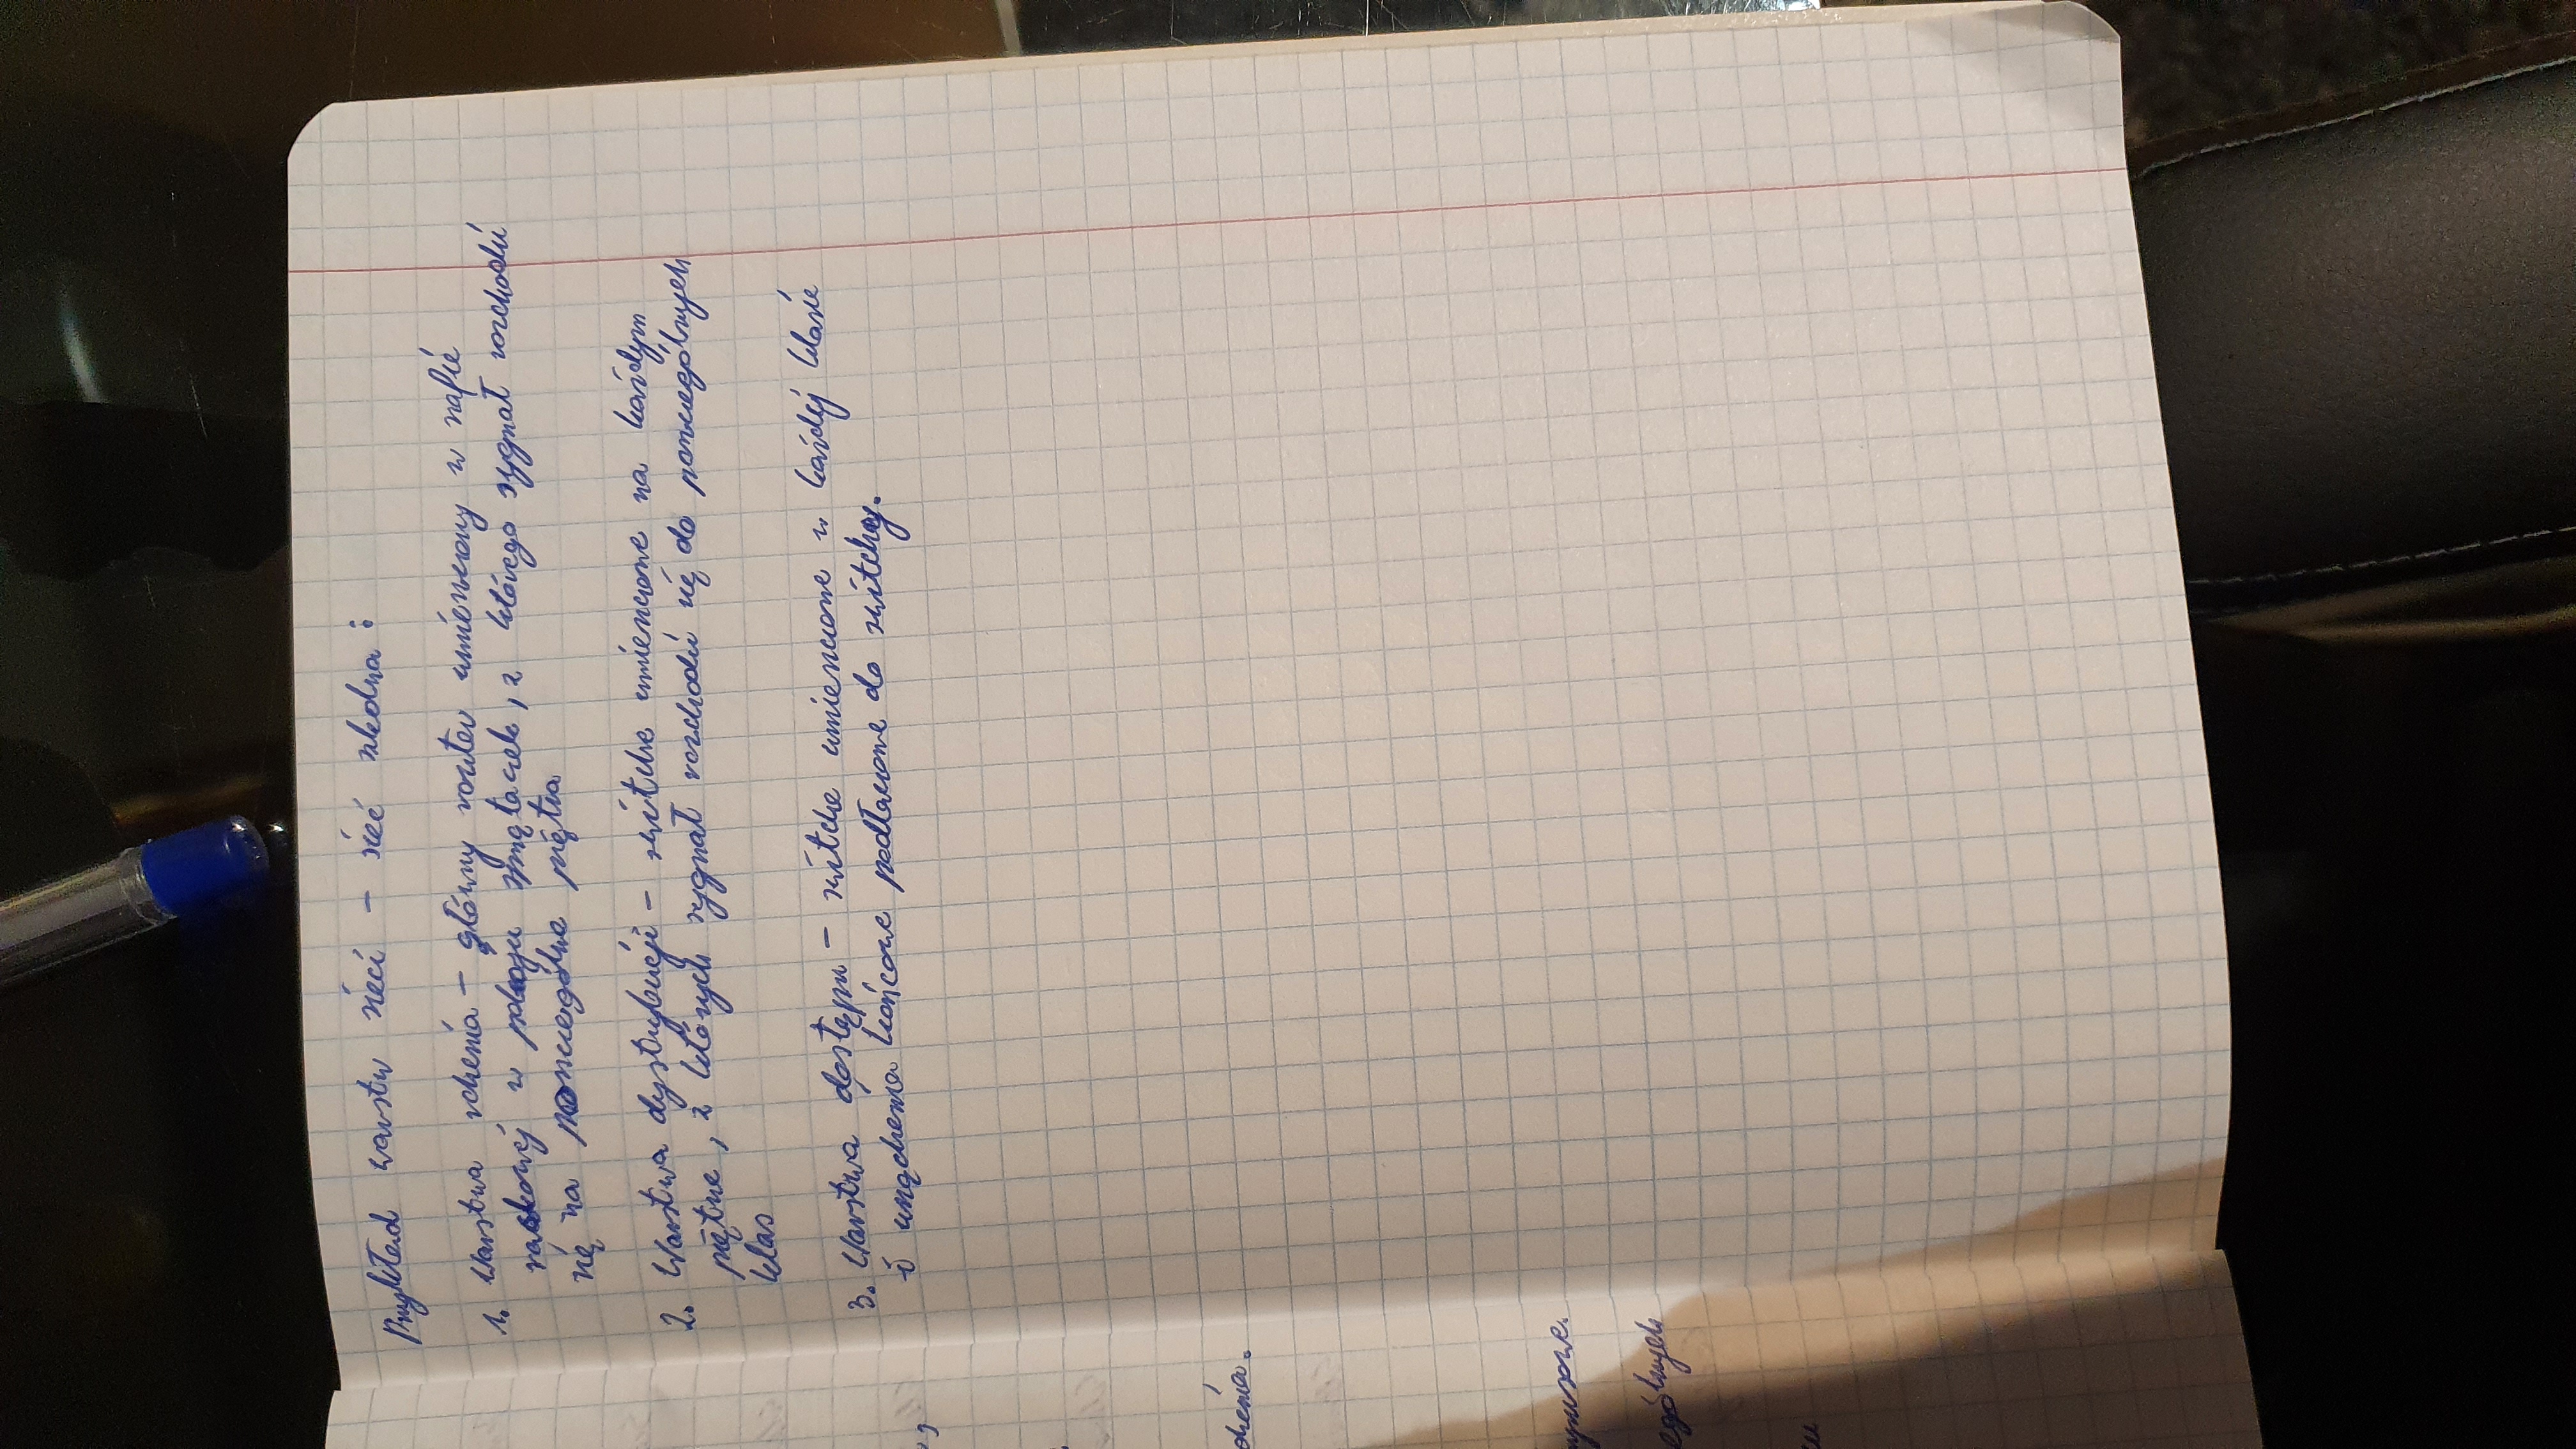 Przykład warstw sieci - sieć szkolna:
1. Warstwa rdzenia - główny router umieszczony w szafie
rackowej w pokoju sprzątaczek, z którego sygnał rozchodzi
się na poszczególne piętra
2. Warstwa dystrybucji - switche umieszczone na każdym
piętrze, z których sygnał rozchodzi się do poszczególnych
klas
3. Warstwa dostępu - switche umieszczone w każdej klasie
i urządzenia końcowe podłączone do switchy.